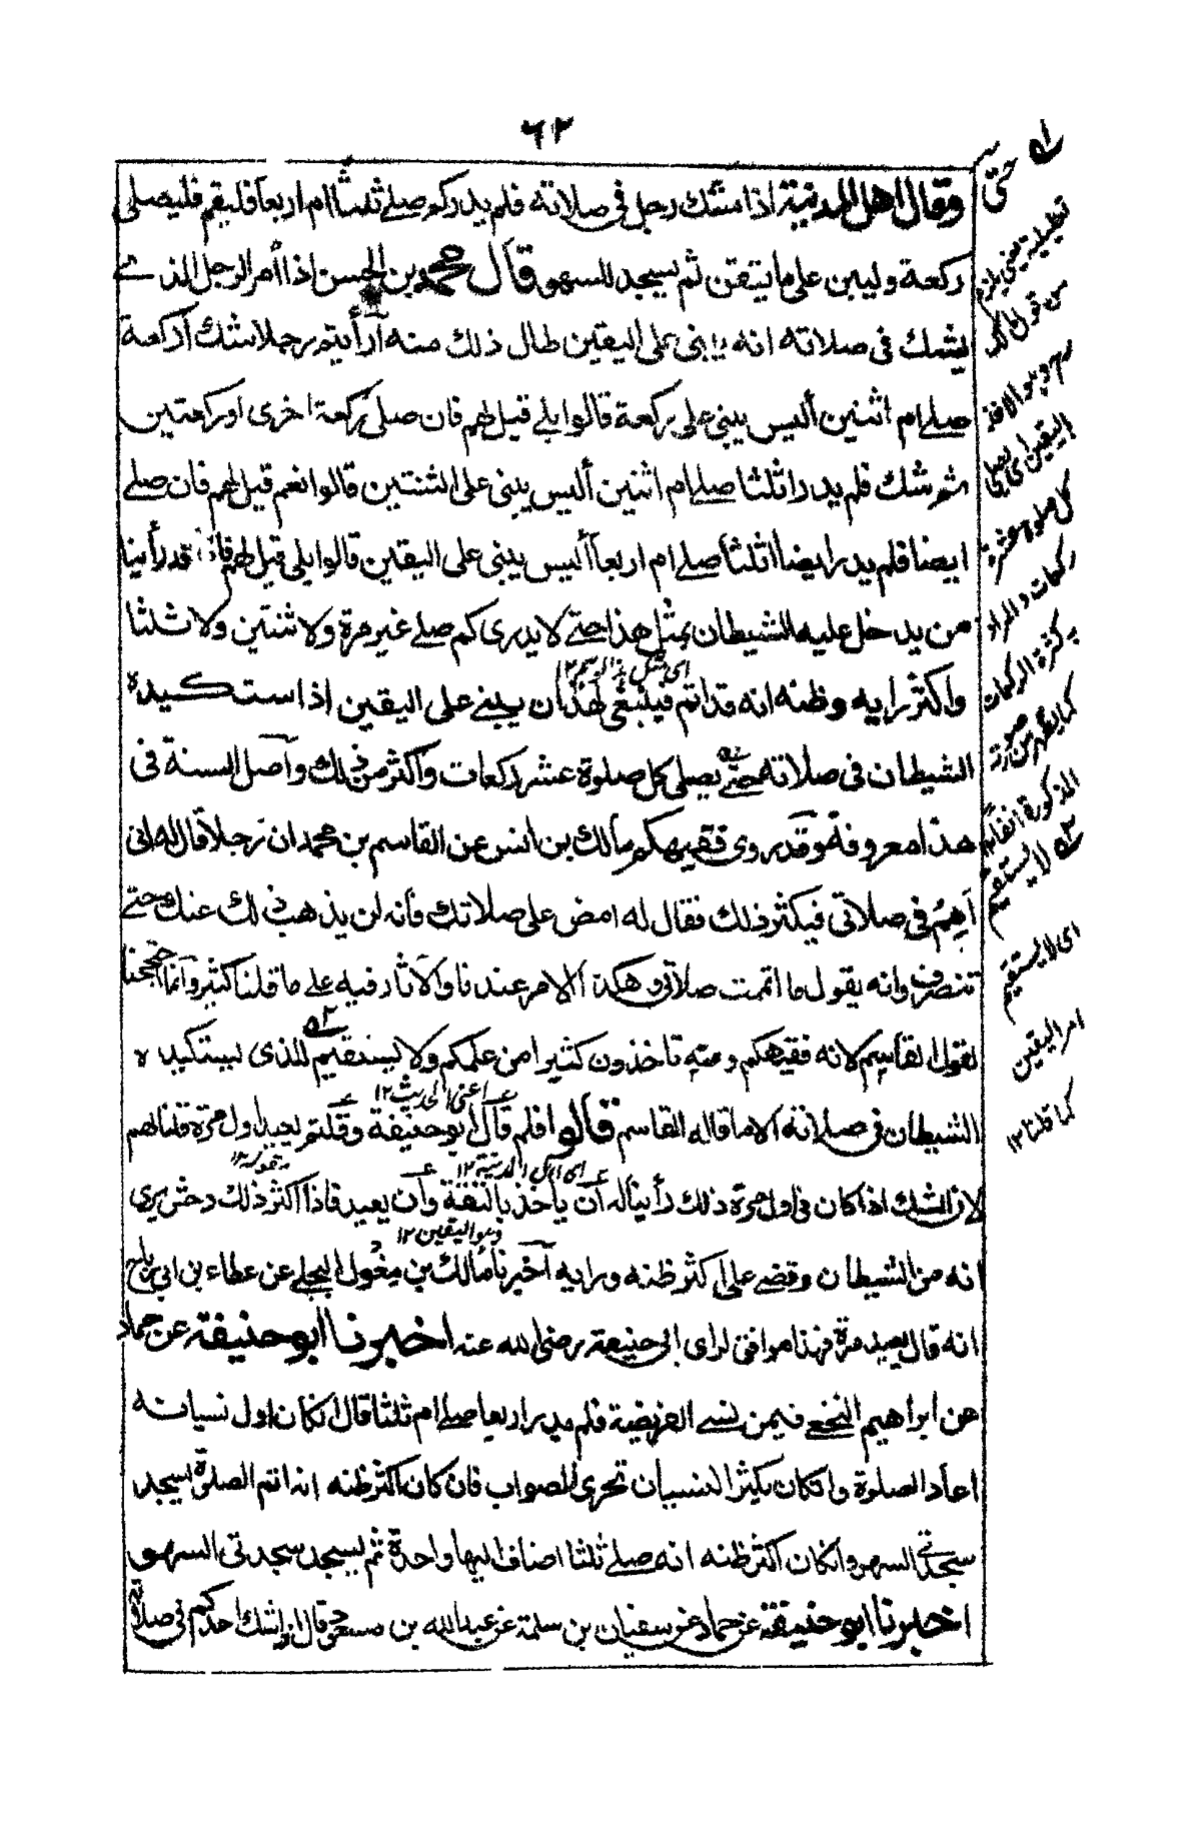 ٦٢
وقال اهل المدينة اذا شك رجل فى صلاته فلم يدر كم صلے ثلثا ام اربعا فليقم فليصلى
ركعة وليبن على ما يتيقن ثم يسجد للسهو قال محمد بن الحسن اذا أمر الرجل الذے
يشك فى صلاته انه يبنى على اليقين طال ذلك منه أرأيتم رجلا شك أركعة
صلے ام اثنين أليس يبنى على ركعة قالوا بلے قيل لهم فان صلى ركعة اخرى او ركعتين
ثم شك فلم يدر اثلثا صلے ام اثنين أليس يبنى على الثنتين قالوا نعم قيل لهم فان صلے
ايضا فلم يدر ايضا أثلثا صلے ام اربعا أليس يبنى على اليقين قالوا بلى قيل لهم قد رأينا
من يدخل عليه الشيطان بمثل هذا حتے لا يدرى كم صلے غير مرة ولا ثنتين ولا ثلثا
واكثر رايه وظنه انه قد اتم فينبغى لهذا ان يبنے على اليقين اذا استكيده
الشيطان فى صلاته حتے يصلى كل صلوة عشر ركعات واكثر من ذلك وأصل السنة فى
هذا معروفة وقد روى فقيهكم مالك بن انس عن القاسم بن محمد ان رجلا قال له انى
أهم فى صلاتى فيكثر ذلك فقال له امض على صلاتك فأنه لن يذهب ذلك عنك حتے
تنصرف وانه يقول ما اتممت صلاتى وهكذا الامر عندنا والآثار فيه على ما قلنا كثير وأنما احتججنا
بقول القاسم لانه فقيهكم ومنه تاخذون كثيرا من علمكم ولا يستقيم للذى يستكيده
الشيطان فى صلاته الا ما قاله القاسم قالوا فلم قال ابو حنيفة وقلتم يعيد اول مرة قلنا لهم
لان الشك اذا كان فى اول مرة ذلك رأينا له ان ياخذ بالثقة وأن يعيد فاذا اكثر ذلك حتى يرى
انه من الشيطان وقضے على اكثر ظنه ورايه أخبرنا مالك بن مغول البجلے عن عطاء بن ابى رباح
انه قال يعيد مرة فهذا موافق لراى ابى حنيفة رضى الله عنه اخبرنا ابو حنيفة عن حماد
عن ابراهيم النخعے فيمن نسے الفريضة فلم يدر اربعا صلے ام ثلثا قال ان كان اول نسيانه
اعاد الصلوة وان كان يكثر النسيان تحرى الصواب فان كان اكثر ظنه انه اتم الصلوة سجد
سجدتے السهو وان كان اكثر ظنه انه صلے ثلثا اضاف اليها واحدة ثم يسجد سجدتى السهو
اخبرنا ابو حنيفة عن حماد عن سفيان بن سلمة عن عبد الله بن مسعود قال اذا شك احدكم فى صلاته
اى بشكل
اعنى الحديث ١٢
اى اهل المدينة ١٢
بقوله ١٢
وهو اليقين ١٢
له حتى
تعليلية يعنى يلزم
من قول مالك
رح وهو الاخذ
اليقين اى يصلى
كل صلوة عشرة
ركعات والمراد
كثرة الركعات
كما يظهر من صورة
المذكورة آنفا ١٢
٢ه لا يستقيم
اى لا يستقيم
امر اليقين
كما قلنا ١٢